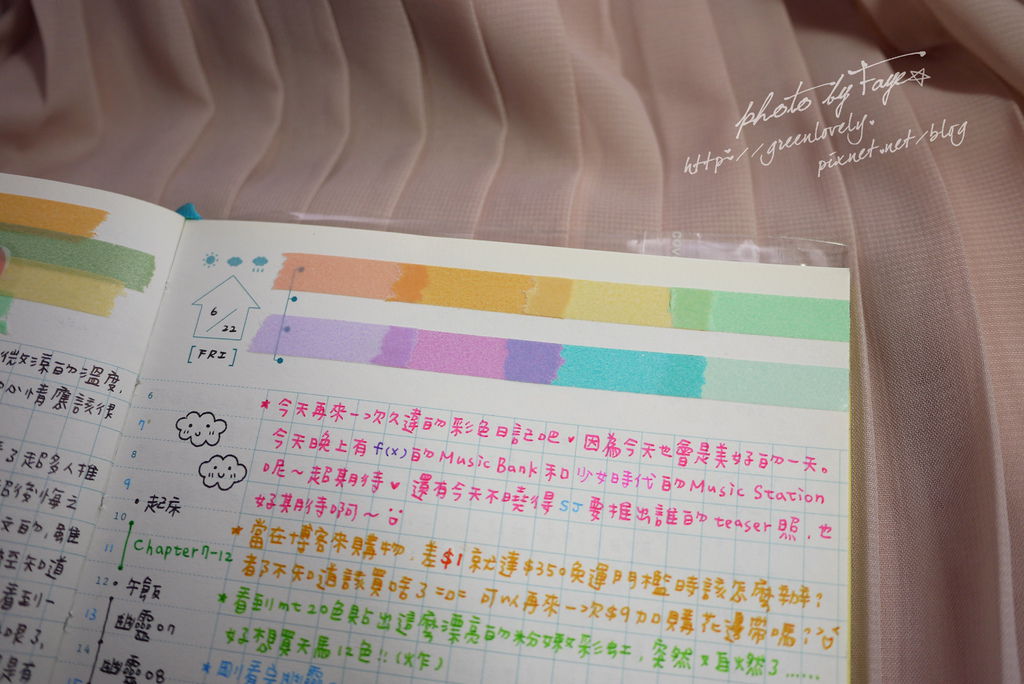 photo by Faye
http://greenlovely.
pixnet.net/blog
微涼的溫度,
心情應該很
了超多人推
後悔之
的,雖
至知道
看到一
6
22
[FRI]
6
7
8
9
起床
10
11
Chapter7-12
12
午飯
13
幽靈07
14
幽靈08
★今天再來一次久違的彩色日記吧♥因為今天也會是美好的一天。
今天晚上有f(x)的Music Bank和少女時代的Music Station
呢~超期待♥還有今天不曉得SJ要推出誰的teaser照,也
好期待啊~
★當在博客來購物,差$1就達$350免運門檻時該怎麼辦?
都不知道該買啥了=口= 可以再來一次$9加購花邊帶嗎?
★看到mt20色貼出這麼漂亮的粉嫩彩虹,突然又自燃了......
好想買天馬12色!!(炸)
★剛看完幽靈